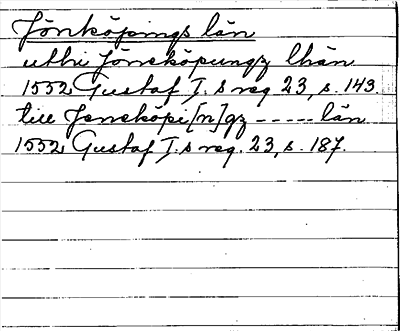 Jönköpings län
uthi Jöneköpungz lhän
1552 Gustaf I.s reg 23, s. 143.
till Jeneköpi[n]gz ----- län
1552 Gustaf I.s reg. 23, s. 187.